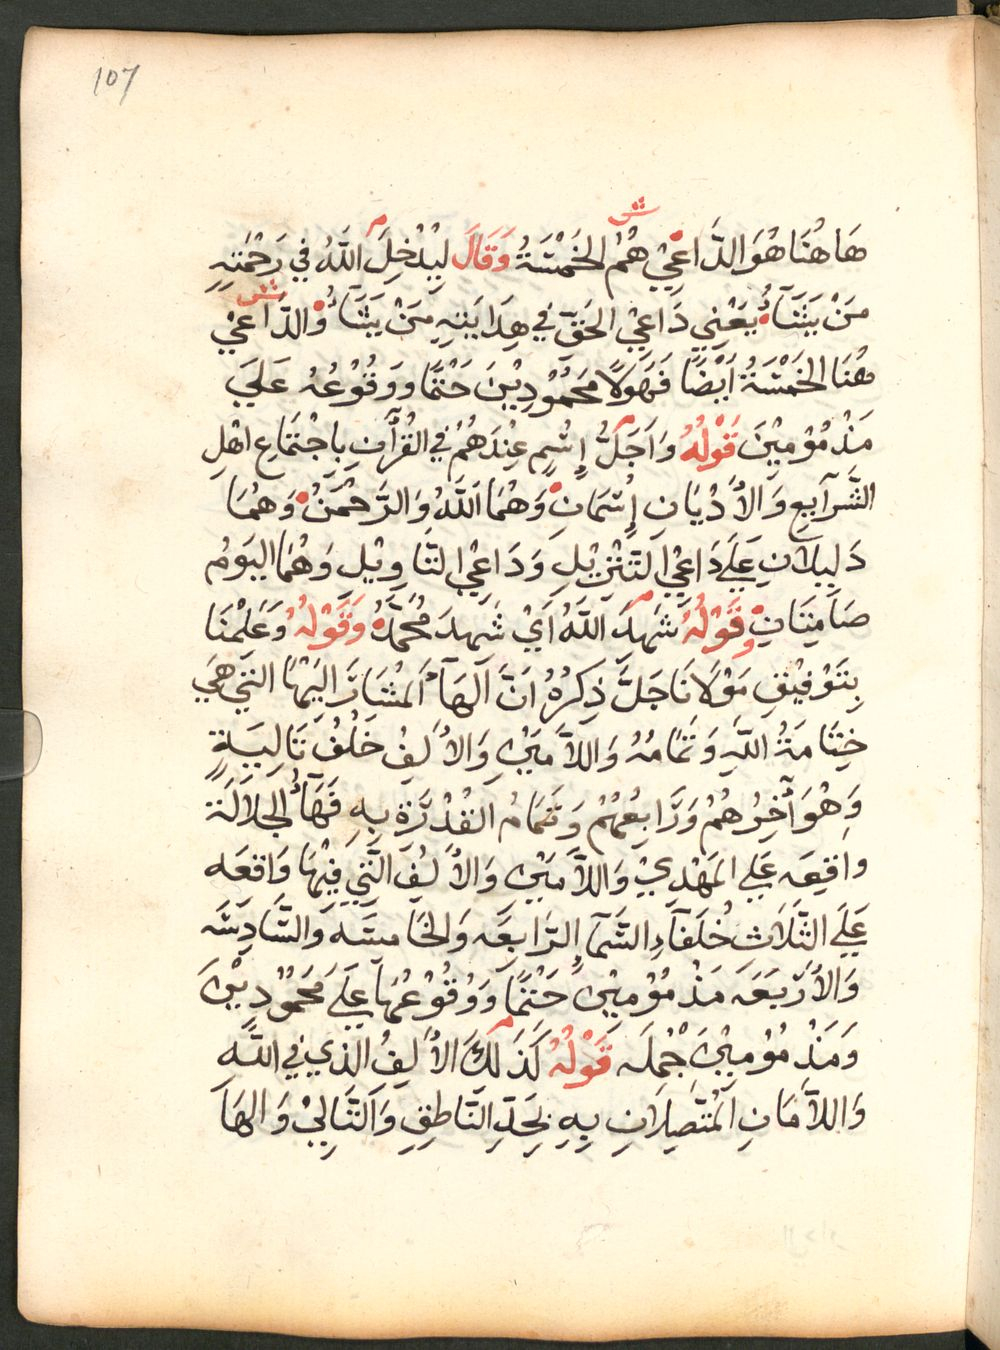 107
هَاهُنَا هُوَ الدَّاعِيْ هُمُ الخَمْسَةُ وَقَالَ لِيُدْخِلَ اللَّهُ فِي رَحْمَتِهِ
مَنْ يَشَآءُ يَعْنِي دَاعِيْ الحَقّ فِي هِدَايَتِهِ مَنْ يَشَآءُ وَالدَّاعِيْ
هُنَا الخَمْسَةُ اَيْضًا فَهَولَا مَحْمُوْدِيْنَ حَتْمًا وَوقُوْعُهُ عَلَيَ
مَذْمُوْمِيْنَ قَوْلُهُ وَاَجَلُّ إِسْمٍ عِنْدَهُمُ فِي القُرْآنِ بِاجْتِمَاعِ اهْلِ
الشَّرَآيعِ وَالأَدْيَانِ إِسْمَانِ وَهُمَا اَللَّهُ وَالرَّحْمَنْ وَهُمَا
دَلِيلَانِ عَلَيَ دَاعِيْ اَلتَنْزِيْلِ وَدَاعِيْ التَاوِيْلِ وَهُمَا اليَومُ
صَامِتَانِ وقَوْلُهُ شَهِدَ اللَّهُ اَيْ شَهِدَ مُحَمَّدْ وَقَوْلُهُ وَعَلِمْنَا
بِتَوْفِيْقِ مَوْلَانَا جَلَّ ذِكرُهُ اَنَّ اَلهَآ اَلمُشَارَ اليَهْا التِي هِيَ
خِتَامَةُ اللَّهِ وَتَمَامُهُ وَاللَّامَيْنِ وَالأَلِفُ خَلْفُ تَالِيَةٍ
وَهُوَ آخِرُهُمْ وَرَابِعُهُمْ وَتَمَامُ القُدْرَةِ بِهِ فَهَآءُ الجَلَالَةَ
واقِعَه عَلي المَهْدِيْ وَاللَّامَيْنِ وَالأَلِفَ الَتِي فِيْهَا وَاقعَه
عَلَيَ الثَّلَاثِ خُلَفَآءِ السَّمَآ إِلرَّابِعَه وَالخَامسَه وَالسَّادِسَه
وَالأَرْبَعَه مَذْمُوْمِيْنَ حَتْمًا وَوُقُوْعُهَا عَلَيَ مَحْمُوْدِيْنَ
وَمَذْمُوْمِيْنَ جُمْلَه قَوْلُهُ كَذَلِكَ الأَلِفُ الذِي فِي اللَّه
وَاللَّامَانِ اَلمُتَّصِلَانِ بِهِ بِحَدِّ النَّاطِقِ وَالتَّالِيْ وَالهَا